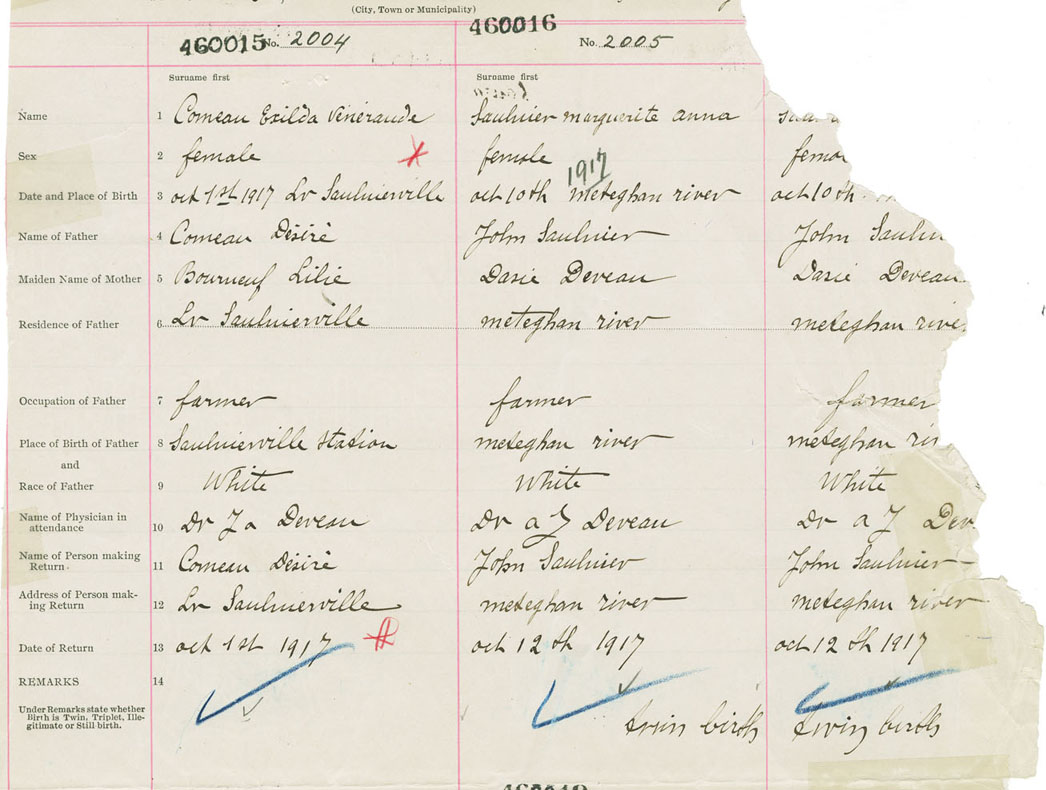 (City, Town or Municipality)
460015 No. 2004 460016 No. 2005
Surname first Surname first
Name 1 Comeau Exilda Vénéraude Saulnier marguerite anna
Sex 2 female female femal
1917
Date and Place of Birth 3 oct 1st 1917 Lr Saulnierville oct 10th meteghan river oct 10th
Name of Father 4 Comeau Désiré John Saulnier John Saulni
Maiden Name of Mother 5 Bourneuf Lilie Dasie Deveau Dasie Deveau
Residence of Father 6 Lr Saulnierville meteghan river meteghan rive
Occupation of Father 7 farmer farmer farmer
Place of Birth of Father 8 Saulnierville station meteghan river meteghan riv
and
Race of Father 9 White White White
Name of Physician in
attendance 10 Dr J a Deveau Dr a J Deveau Dr a J Dev
Name of Person making
Return 11 Comeau Désiré John Saulnier John Saulnier
Address of Person mak-
ing Return 12 Lr Saulnierville meteghan river meteghan river
Date of Return 13 oct 1st 1917 oct 12th 1917 oct 12th 1917
REMARKS 14
Under Remarks state whether
Birth is Twin, Triplet, Ille-
gitimate or Still birth.
twin birth twin birth